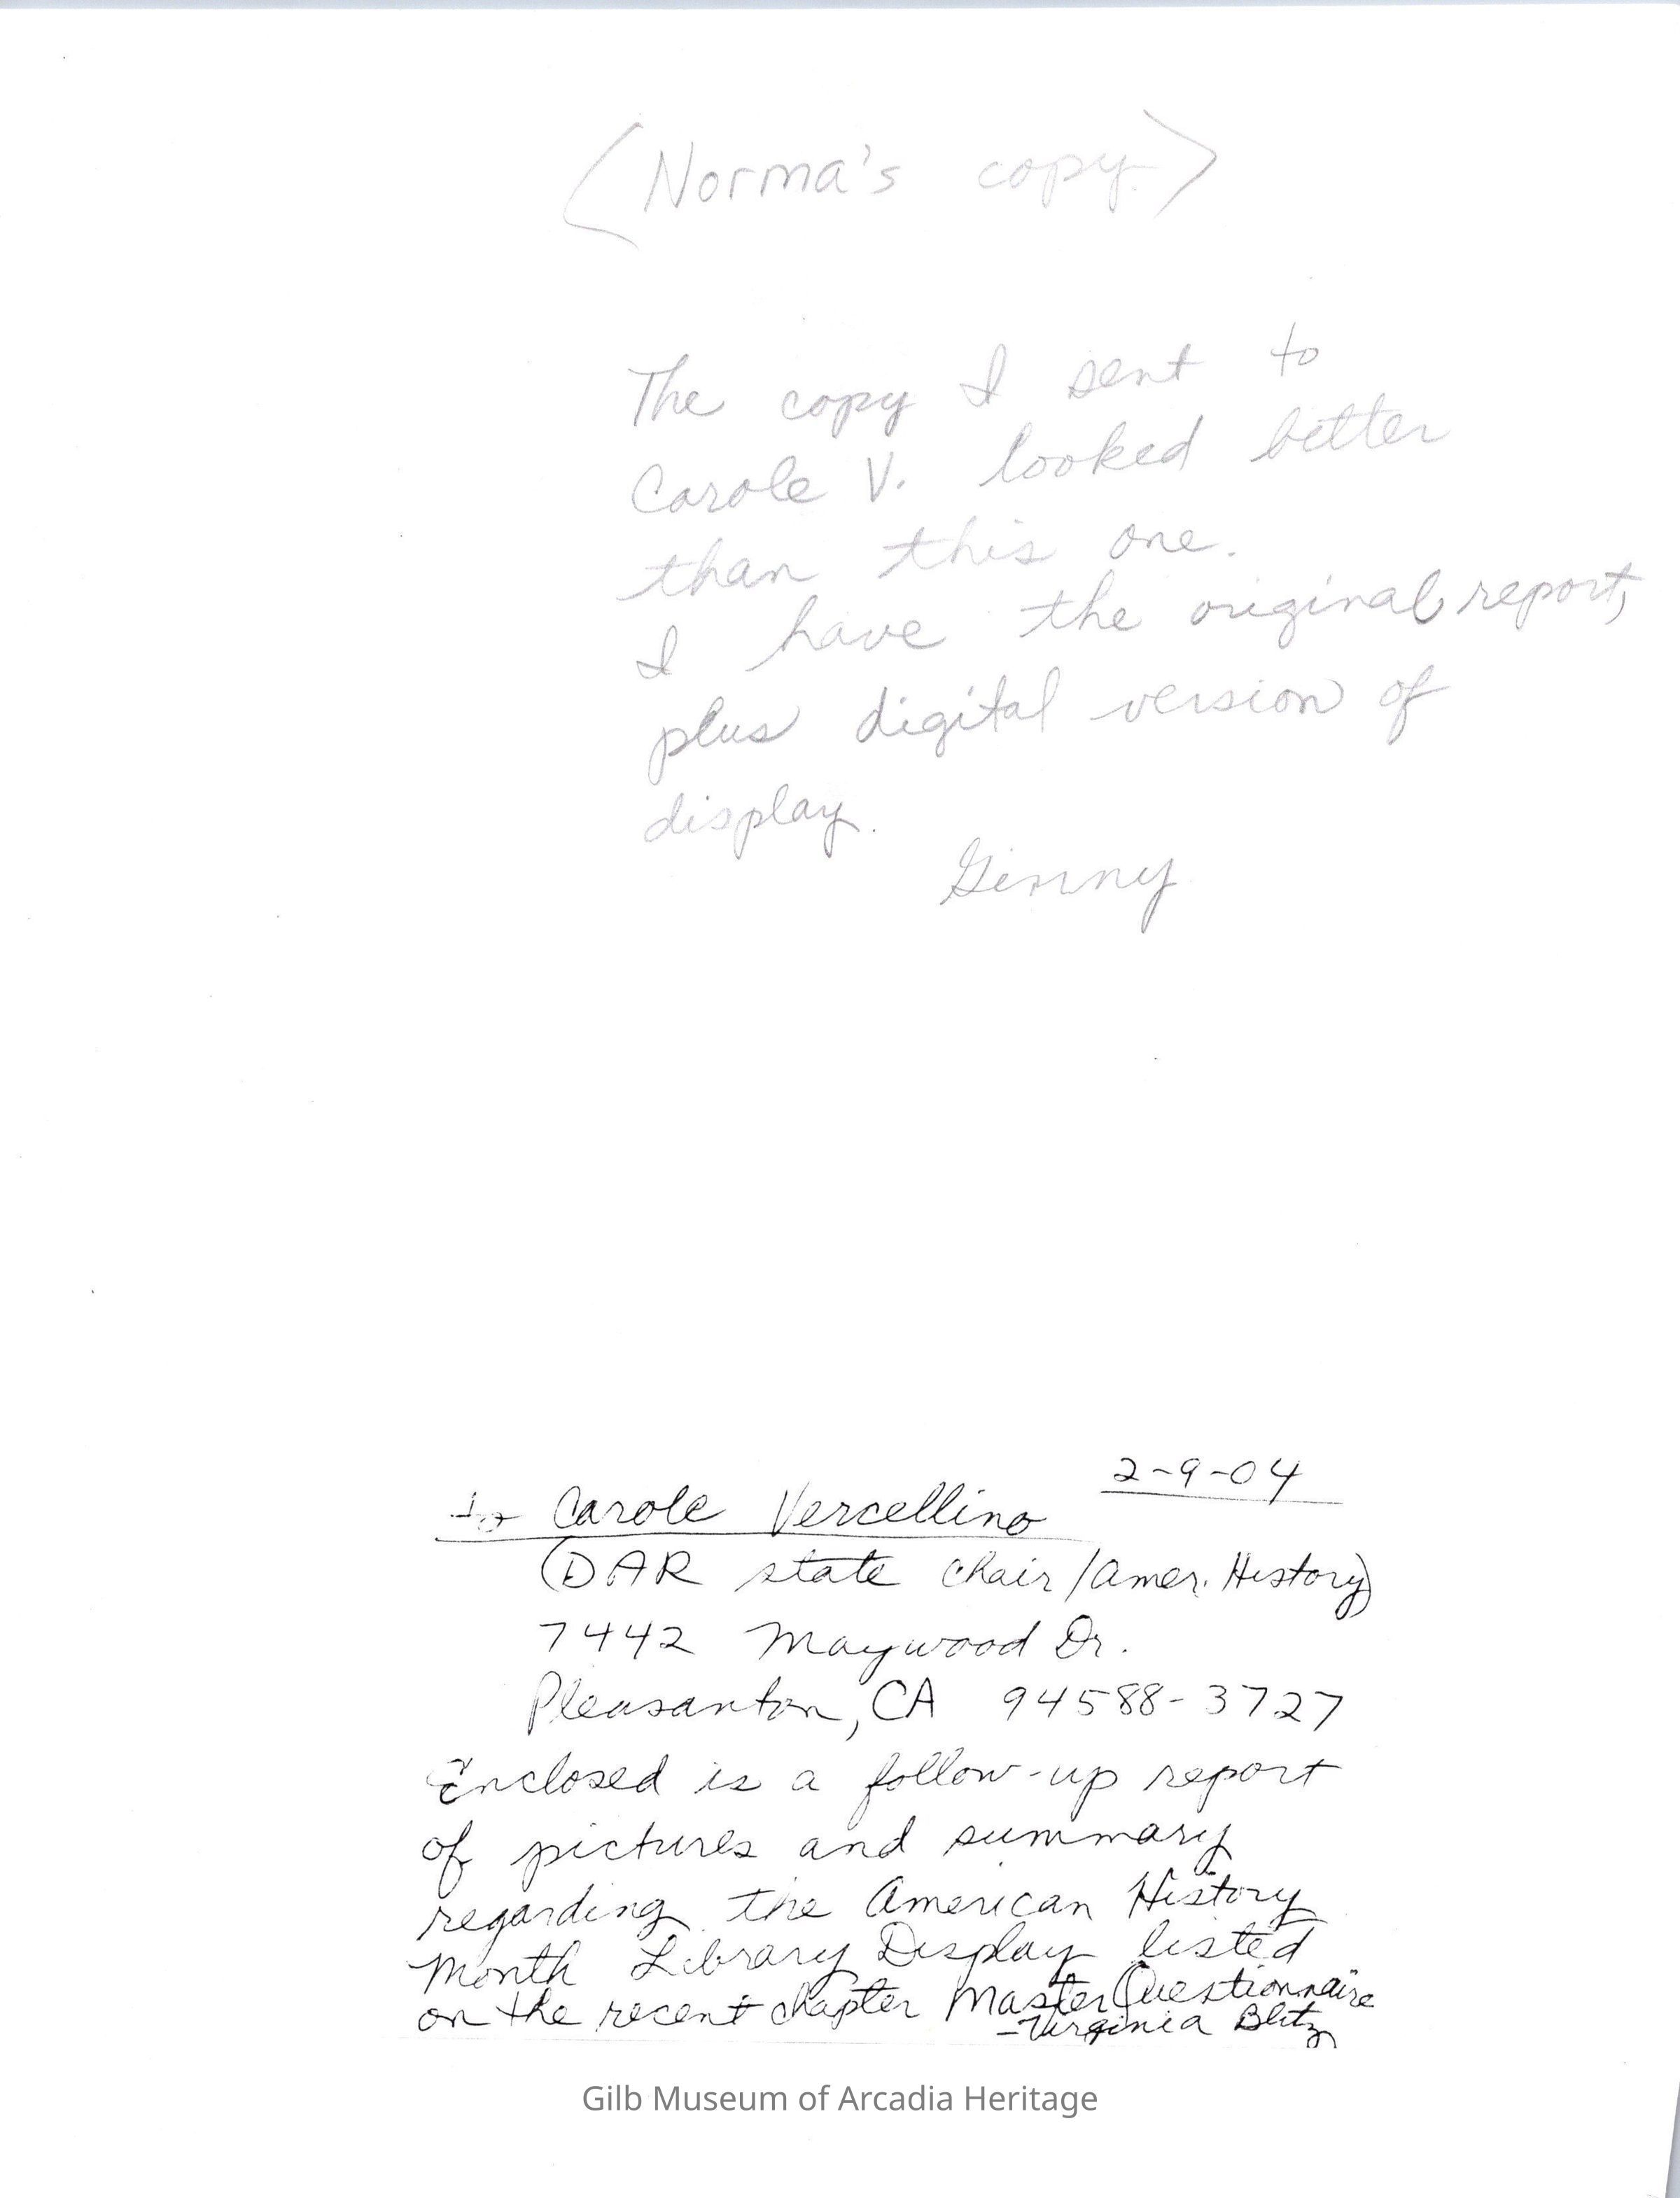 (Norma's copy)
The copy I sent to
Carole V. looked better
than this one.
I have the original report,
plus digital version of
display.
Ginny
2-9-04
to Carole Vercellino
(DAR state chair/Amer. History)
7442 Maywood Dr.
Pleasanton, CA 94588-3727
Enclosed is a follow-up report
of pictures and summary
regarding the American History
Month Library Display listed
on the recent chapter Master Questionnaire
-Virginia Blitz
Gilb Museum of Arcadia Heritage